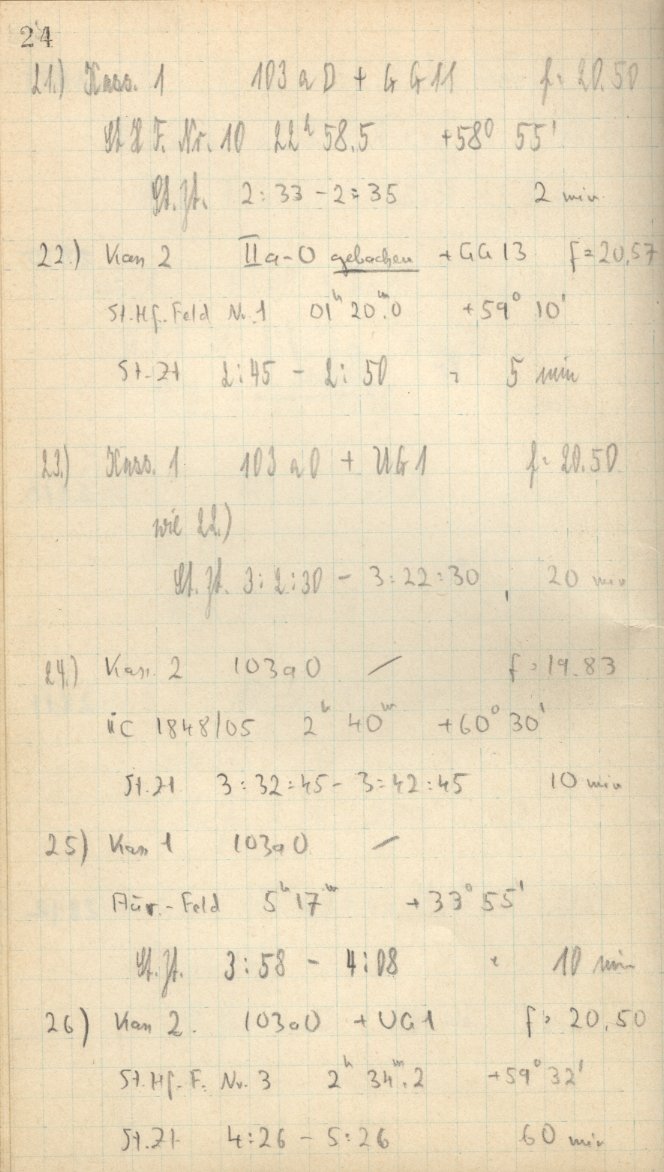 24
21.) Kass. 1 103 a D + GG11 f = 20.50
St H F. Nr. 10 22h 58.5 +58° 55'
St. Zt. 2:33 - 2:35 2 min
22.) Kass 2 IIa-O gebachen + GG 13 f = 20,57
St. Hf. Feld Nr. 1 01h 20m.0 +59° 10'
St. Zt 2:45 - 2:50 = 5 min
23.) Kass. 1 103 a O + UG1 f = 20.50
wie 22.)
St. Zt. 3:2:30 - 3:22:30, 20 min
24.) Kass. 2 103aO / f = 19.83
IC 1848/05 2h 40m +60° 30'
St. Zt 3:32:45 - 3:42:45 10 min
25) Kass 1 103aO /
Aur.-Feld 5h 17m +33° 55'
St. Zt. 3:58 - 4:08 = 10 min
26) Kass 2. 103aO + UG1 f = 20,50
St. Hf. F. Nr. 3 2h 34m.2 +59° 32'
St. Zt 4:26 - 5:26 60 min